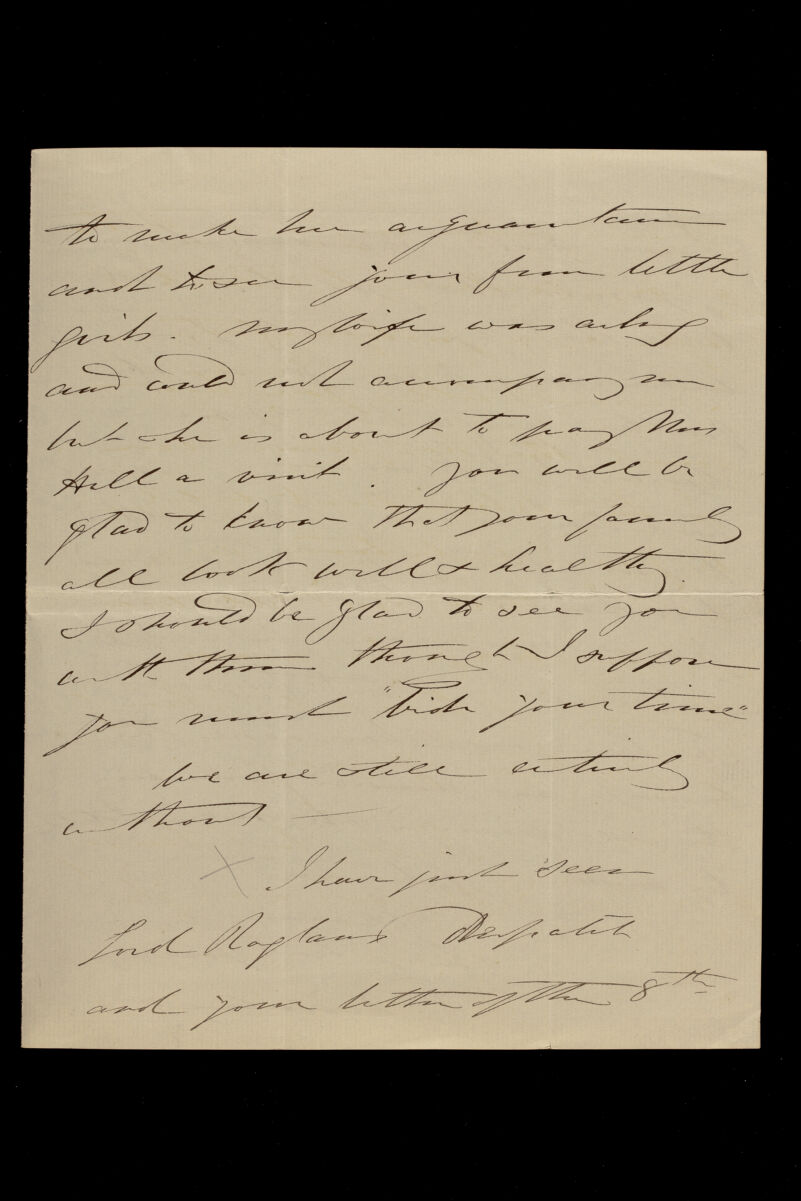 to make her acquaintance
and to see your fine little
girls. My wife was ailing
and could not accompany me
but she is about to pay Mrs
Hall a visit. You will be
glad to know that your family
all look well & healthy.
I should be glad to see you
with them though I suppose
you must "bide your time"
We are still entirely
without —
X I have just seen
Lord Raglans Despatch
and your letter of the 8th